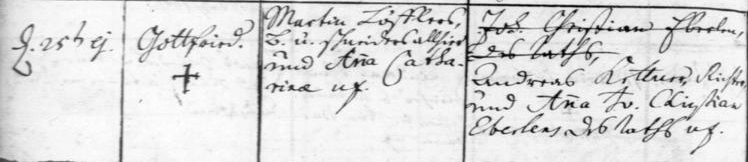 d. 25t ej.
Gottfried.
Martin Löfflers,
B. u. Schneiders allhier
und Aña Catha-
rinæ ux.
Joh. Christian Eberlen,
des Raths,
Andreas Kettner, Richter
und Aña Fr. Christian
Eberlens des Raths ux.